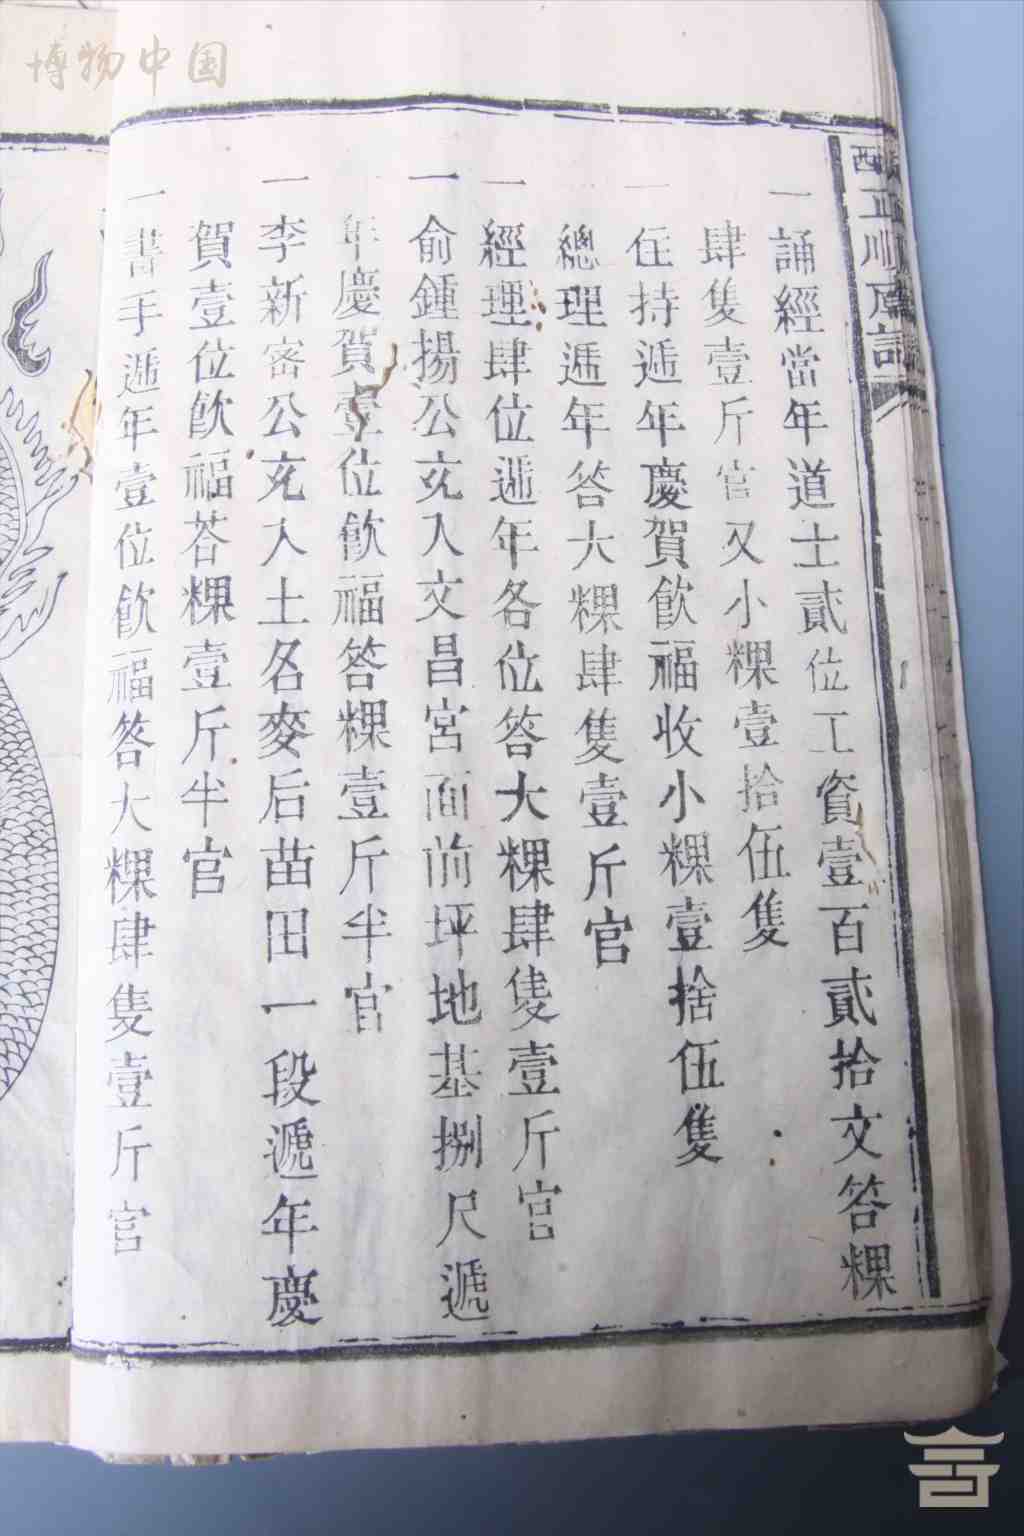 博物中国
一誦經當年道士貳位工資壹百貳拾文答粿
肆隻壹斤官又小粿壹拾伍隻
一住持遞年慶賀飲福收小粿壹捨伍隻
總理遞年答大粿肆隻壹斤官
一經理肆位遞年各位答大粿肆隻壹斤官
一俞鍾揚公充入文昌宮面前坪地基捌尺遞
年慶賀壹位飲福答粿壹斤半官
一李新密公充入土名麥后苗田一段遞年慶
賀壹位飲福荅粿壹斤半官
一書手遞年壹位飲福答大粿肆隻壹斤官